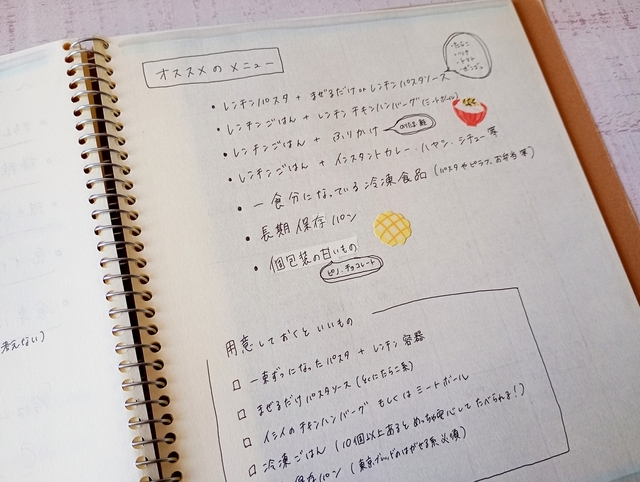 考えない)
オススメのメニュー
・たらこ
・トマト
・レンチンパスタ + まぜるだけ or レンチンパスタソース
・レンチンごはん + レンチンチキンハンバーグ(ミートボール)
・レンチンごはん + ふりかけ
のりたま
・レンチンごはん + インスタントカレー・ハヤシ・シチュー等
・一食分になっている冷凍食品(パスタやピラフ、お弁当等)
・長期保存パン
・個包装の甘いもの
ピノ、チョコレート
用意しておくといいもの
□ 一束ずつになったパスタ + レンチン容器
□ まぜるだけパスタソース(とくにたらこ系)
□ イシイのチキンハンバーグ もしくは ミートボール
□ 冷凍ごはん(10個以上あるとめっちゃ安心してたべられる!)
保存パン(東京ブレッドのはがせる系必須)